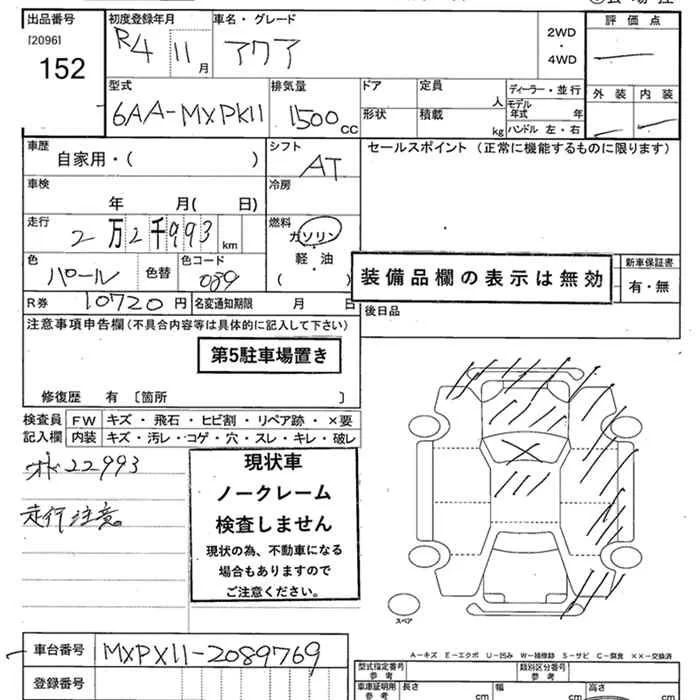 出品番号 初度登録年月 車名・グレード 評価点
[2096]
152 R4 11月 アクア 2WD・4WD —
型式 排気量 ドア 定員 人 ディーラー・並行 外装 内装
6AA-MXPK11 1500cc 形状 積載 kg モデル年式 年 — —
ハンドル 左・右
車歴 シフト セールスポイント(正常に機能するものに限ります)
自家用・( ) AT
車検 冷房
年 月( 日)
走行 燃料
2万2千993km ガソリン
軽・油
( )
色 色替 色コード 装備品欄の表示は無効 新車保証書
パール 089 有・無
R券 10720円 名変通知期限 月 日 後日品
注意事項申告欄(不具合内容等は具体的に記入して下さい)
第5駐車場置き
修復歴 有 〔箇所 〕
検査員 FW キズ・飛石・ヒビ割・リペア跡・×要
記入欄 内装 キズ・汚レ・コゲ・穴・スレ・キレ・破レ
22993
走行注意。
現状車
ノークレーム
検査しません
現状の為、不動車になる
場合もありますので
ご注意ください。
スペア
A-キズ E-エクボ U-凹み W-補修跡 S-サビ C-腐食 ××-交換済
車台番号 MXPX11-2089769
登録番号
型式指定番号 類別区分番号
参考 参考
車庫証明用 長さ 幅 高さ
参考 cm cm cm